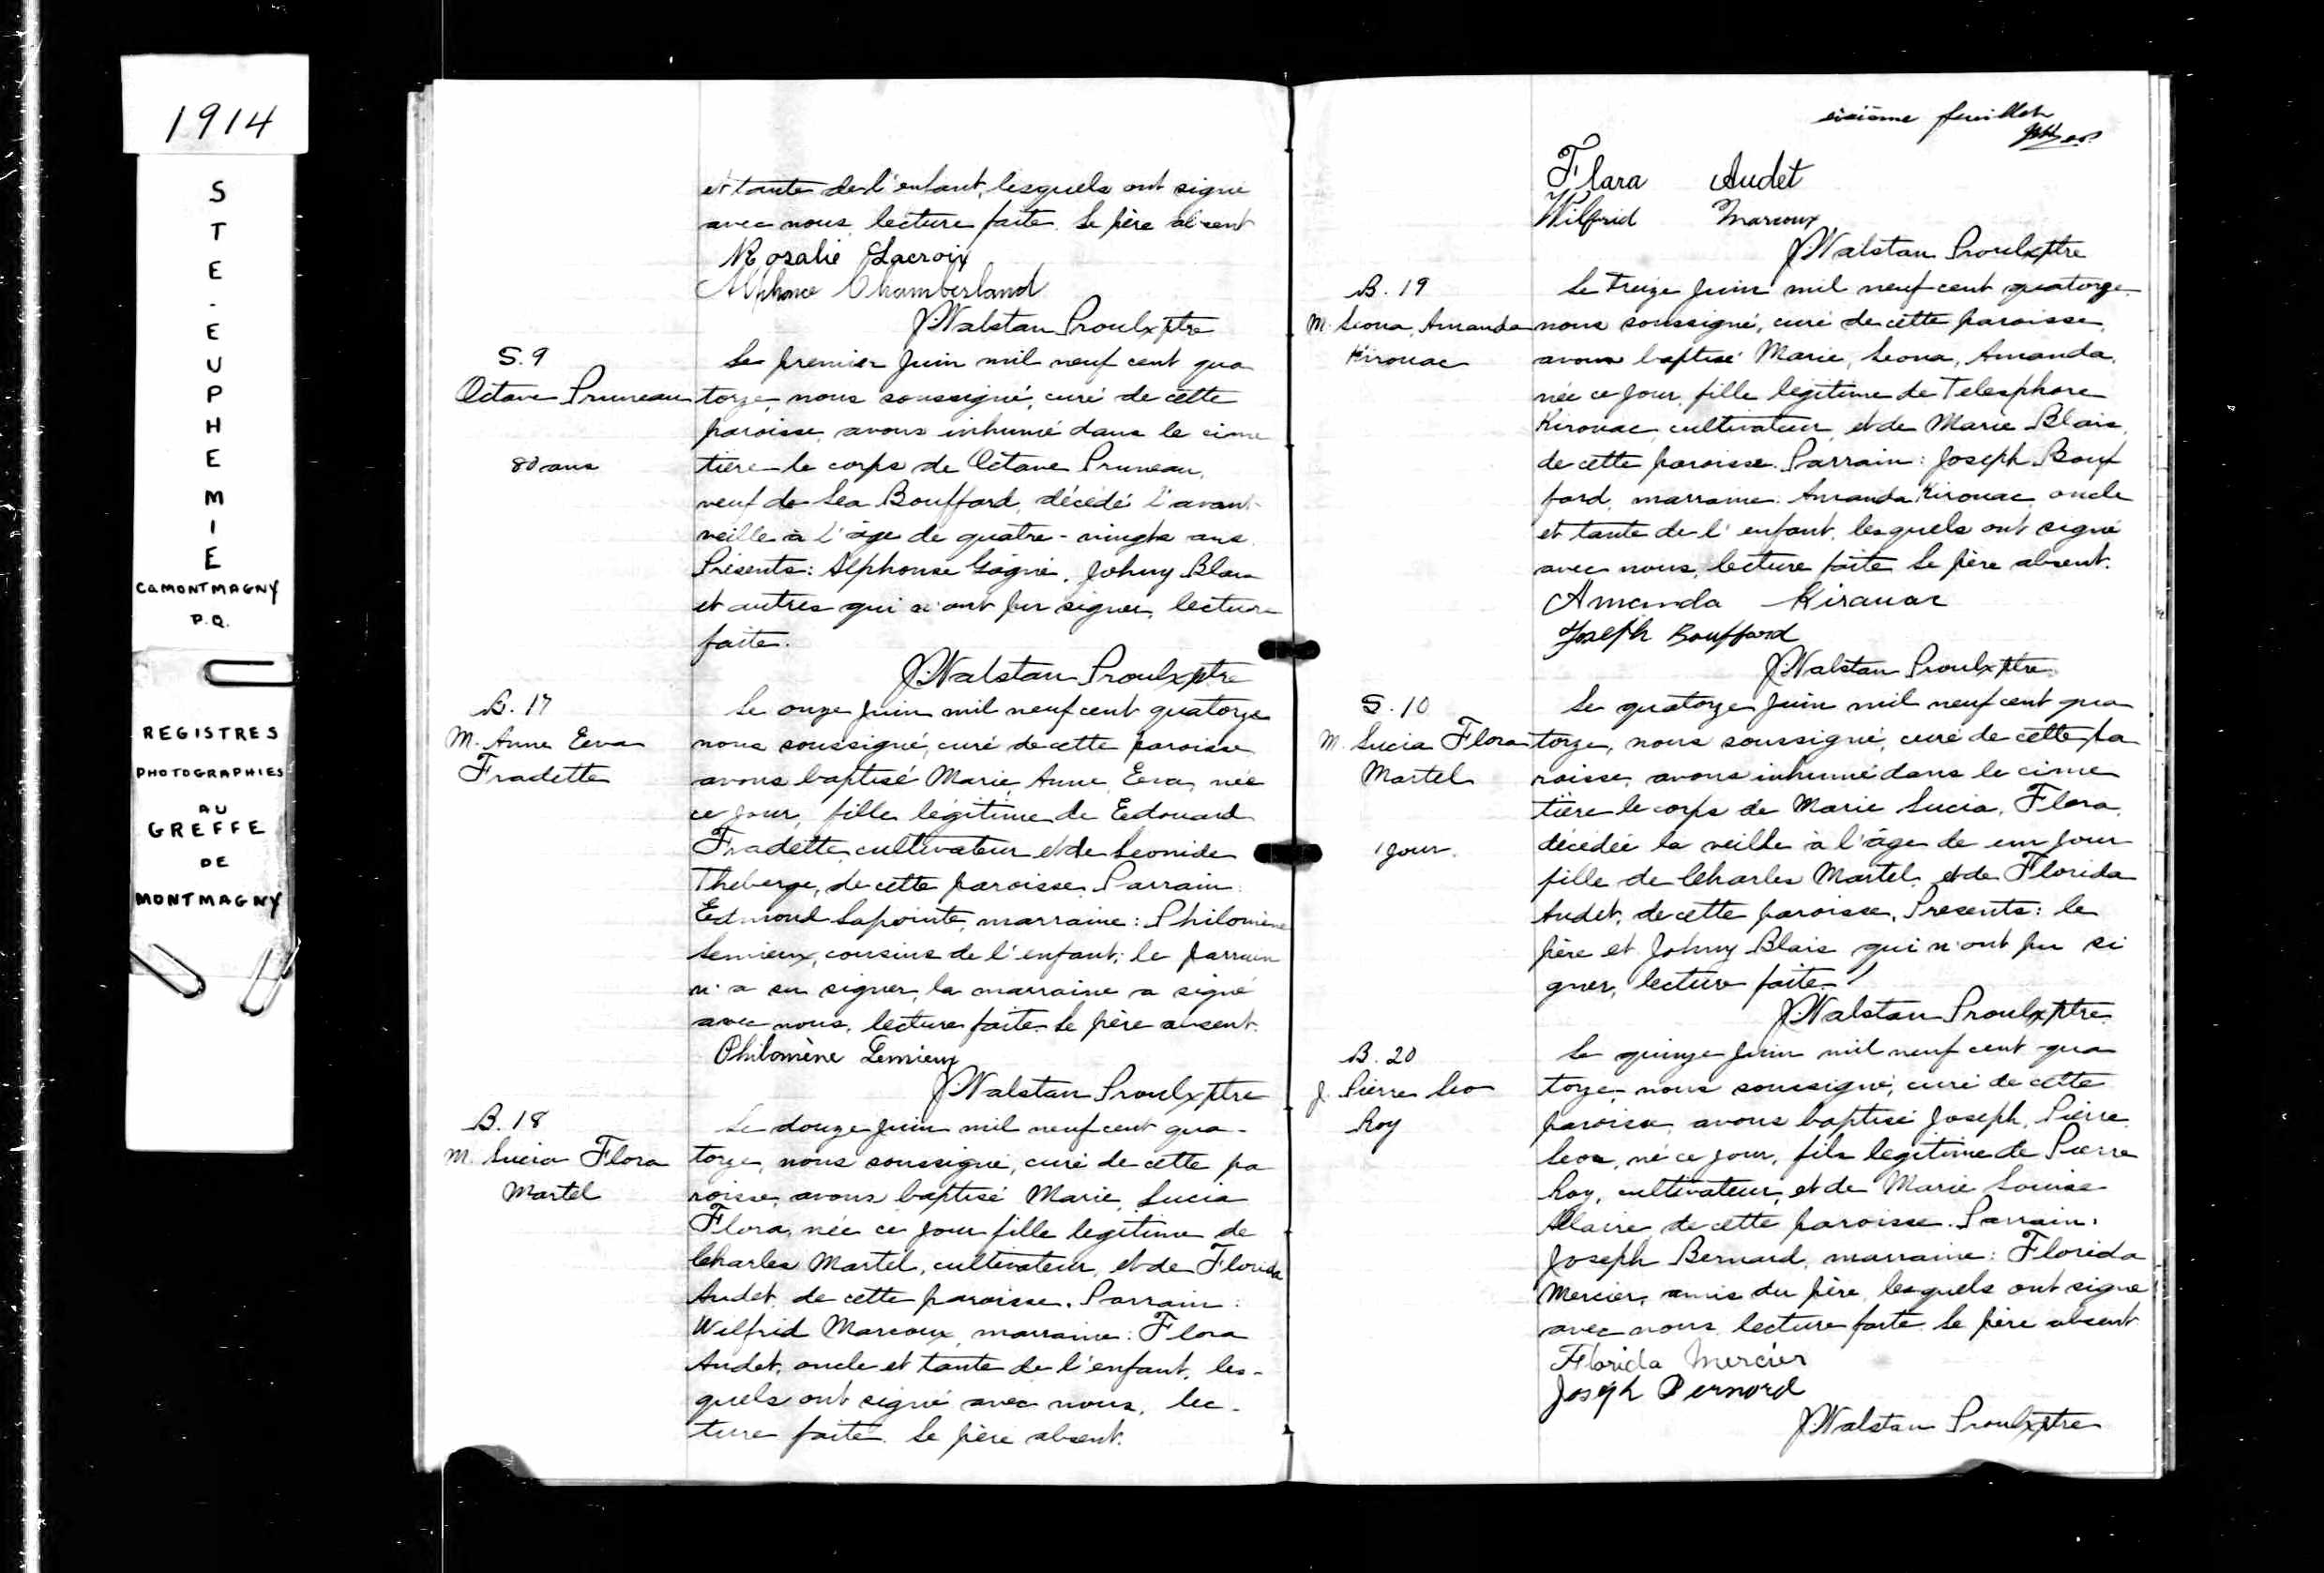 1914
STE-EUPHEMIE
Co MONTMAGNY
P.Q.
REGISTRES
PHOTOGRAPHIES
AU
GREFFE
DE
MONTMAGNY
et tante de l'enfant, lesquels ont signé
avec nous, lecture faite. Le père absent
Rosalie Lacroix
Alphonse Chamberland
J. Walstan Proulx ptre
S. 9
Octave Pruneau
80 ans
Le premier juin mil neuf cent qua
torze, nous soussigné, curé de cette
paroisse, avons inhumé dans le cime
tière le corps de Octave Pruneau,
veuf de Lea Bouffard, décédé l'avant-
veille à l'âge de quatre-vingts ans.
Présents: Alphonse Gagné, Johny Blais
et autres qui n'ont pu signer, lecture
faite.
J. Walstan Proulx ptre
B. 17
M. Anne Eeva
Fradette
Le onze juin mil neuf cent quatorze
nous soussigné, curé de cette paroisse
avons baptisé Marie, Anne, Eeva, née
ce jour, fille légitime de Eedouard
Fradette, cultivateur et de Leonide
Theberge, de cette paroisse. Parrain:
Eedmond Lapointe, marraine: Philomène
Lemieux, cousins de l'enfant; le parrain
n'a su signer, la marraine a signé
avec nous, lecture faite. Le père absent.
Philomène Lemieux
J. Walstan Proulx ptre
B. 18
M. Lucia Flora
Martel
Le douze juin mil neuf cent qua-
torze, nous soussigné, curé de cette pa
roisse, avons baptisé Marie, Lucia
Flora, née ce jour fille legitime de
Charles Martel, cultivateur, et de Florida
Audet, de cette paroisse. Parrain:
Wilfrid Marcoux, marraine: Flora
Audet, oncle et tante de l'enfant, les-
quels ont signé avec nous, lec-
ture faite. Le père absent.
sixième feuillet
Flara Audet
Wilfrid Marcoux
J. Walstan Proulx ptre
B. 19
M. Leona, Amanda
Kirouac
Le treize juin mil neuf cent quatorze
nous soussigné, curé de cette paroisse,
avons baptisé Marie, Leona, Amanda,
née ce jour, fille legitime de Telesphore
Kirouac, cultivateur, et de Marie Blais,
de cette paroisse. Parrain: Joseph Bouf
fard, marraine: Amanda Kirouac, oncle
et tante de l'enfant, lesquels ont signé
avec nous, lecture faite. Le père absent.
Amanda Kirauac
Joseph Bouffard
J. Walstan Proulx ptre
S. 10
M. Lucia Flora
Martel
1 jour.
Le quatorze juin mil neuf cent qua
torze, nous soussigné, curé de cette pa
roisse, avons inhumé dans le cime
tière le corps de Marie Lucia, Flora,
décédée la veille à l'âge de un jour
fille de Charles Martel, et de Florida
Audet, de cette paroisse. Presents: le
père et Johny Blais qui n'ont pu si
gner, lecture faite.
J. Walstan Proulx ptre
B. 20
J. Pierre Leo
Roy
Le quinze juin mil neuf cent qua
torze, nous soussigné, curé de cette
paroisse, avons baptisé Joseph, Pierre
Leo, né ce jour, fils legitime de Pierre
Roy, cultivateur, et de Marie Louise
Allaire de cette paroisse. Parrain:
Joseph Bernard, marraine: Florida
Mercier, amis du père, lesquels ont signé
avec nous, lecture faite. Le père absent
Florida Mercier
Joseph Bernard
J. Walstan Proulx ptre